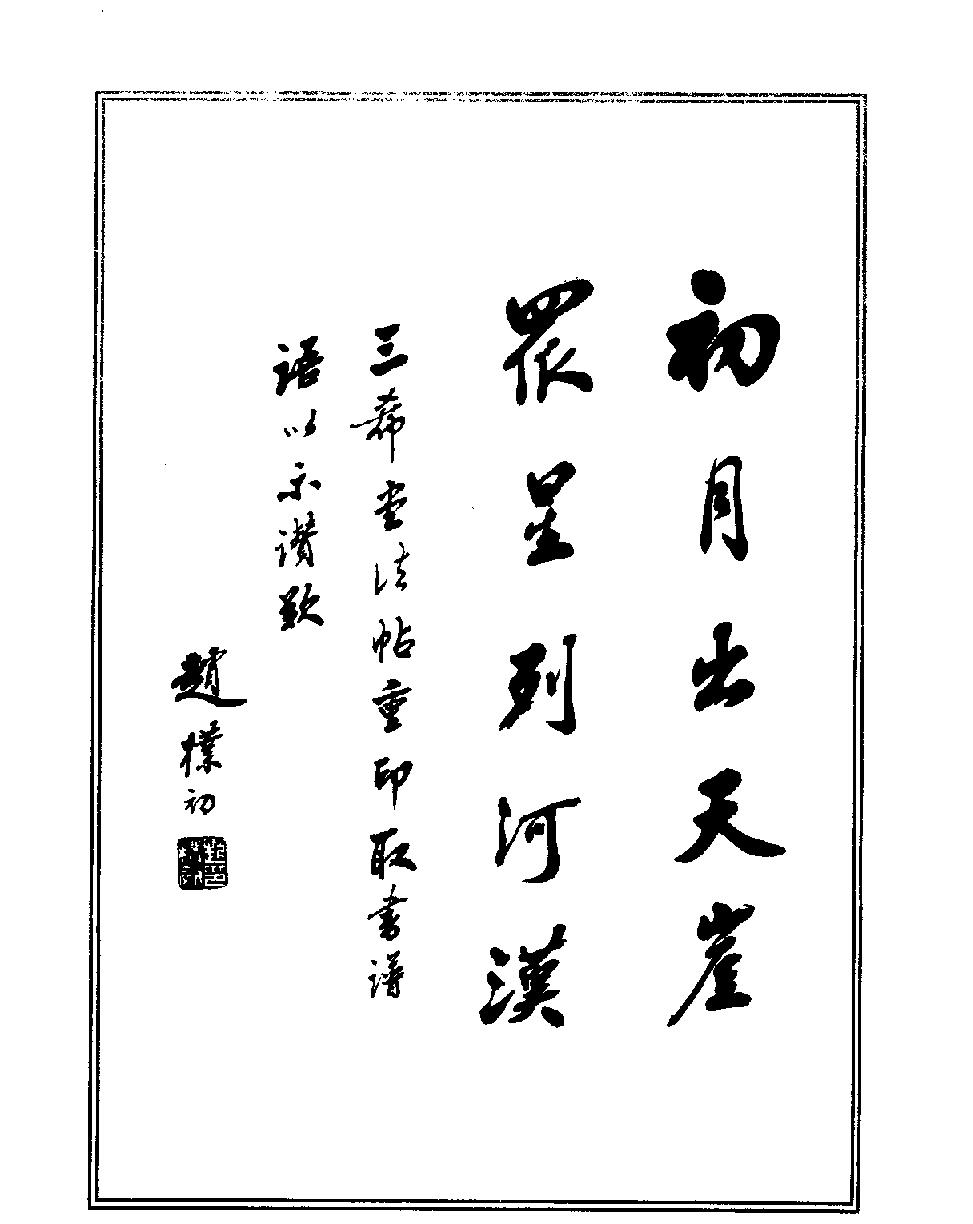 初月出天崖
眾星列河漢
三希堂法帖重印取書譜
語以示讚歎
趙樸初